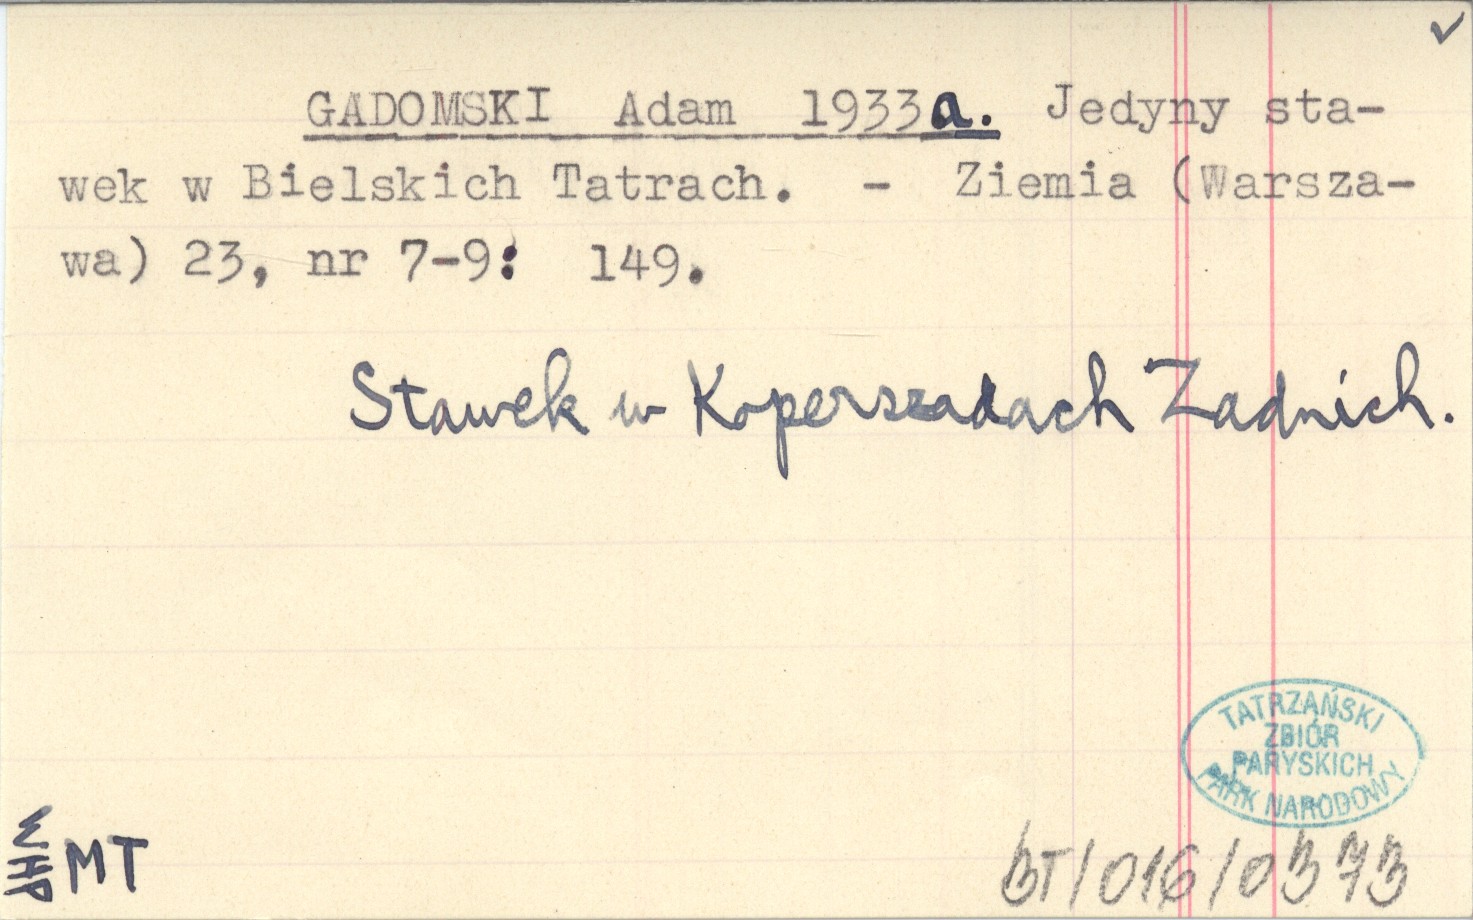 GADOMSKI Adam 1933a. Jedyny sta-
wek w Bielskich Tatrach. - Ziemia (Warsza-
wa) 23, nr 7-9: 149.
Stawek w Koperszadach Zadnich.
TATRZAŃSKI
ZBIÓR
PARYSKICH
PARK NARODOWY
WHP
MT
BT/016/0373